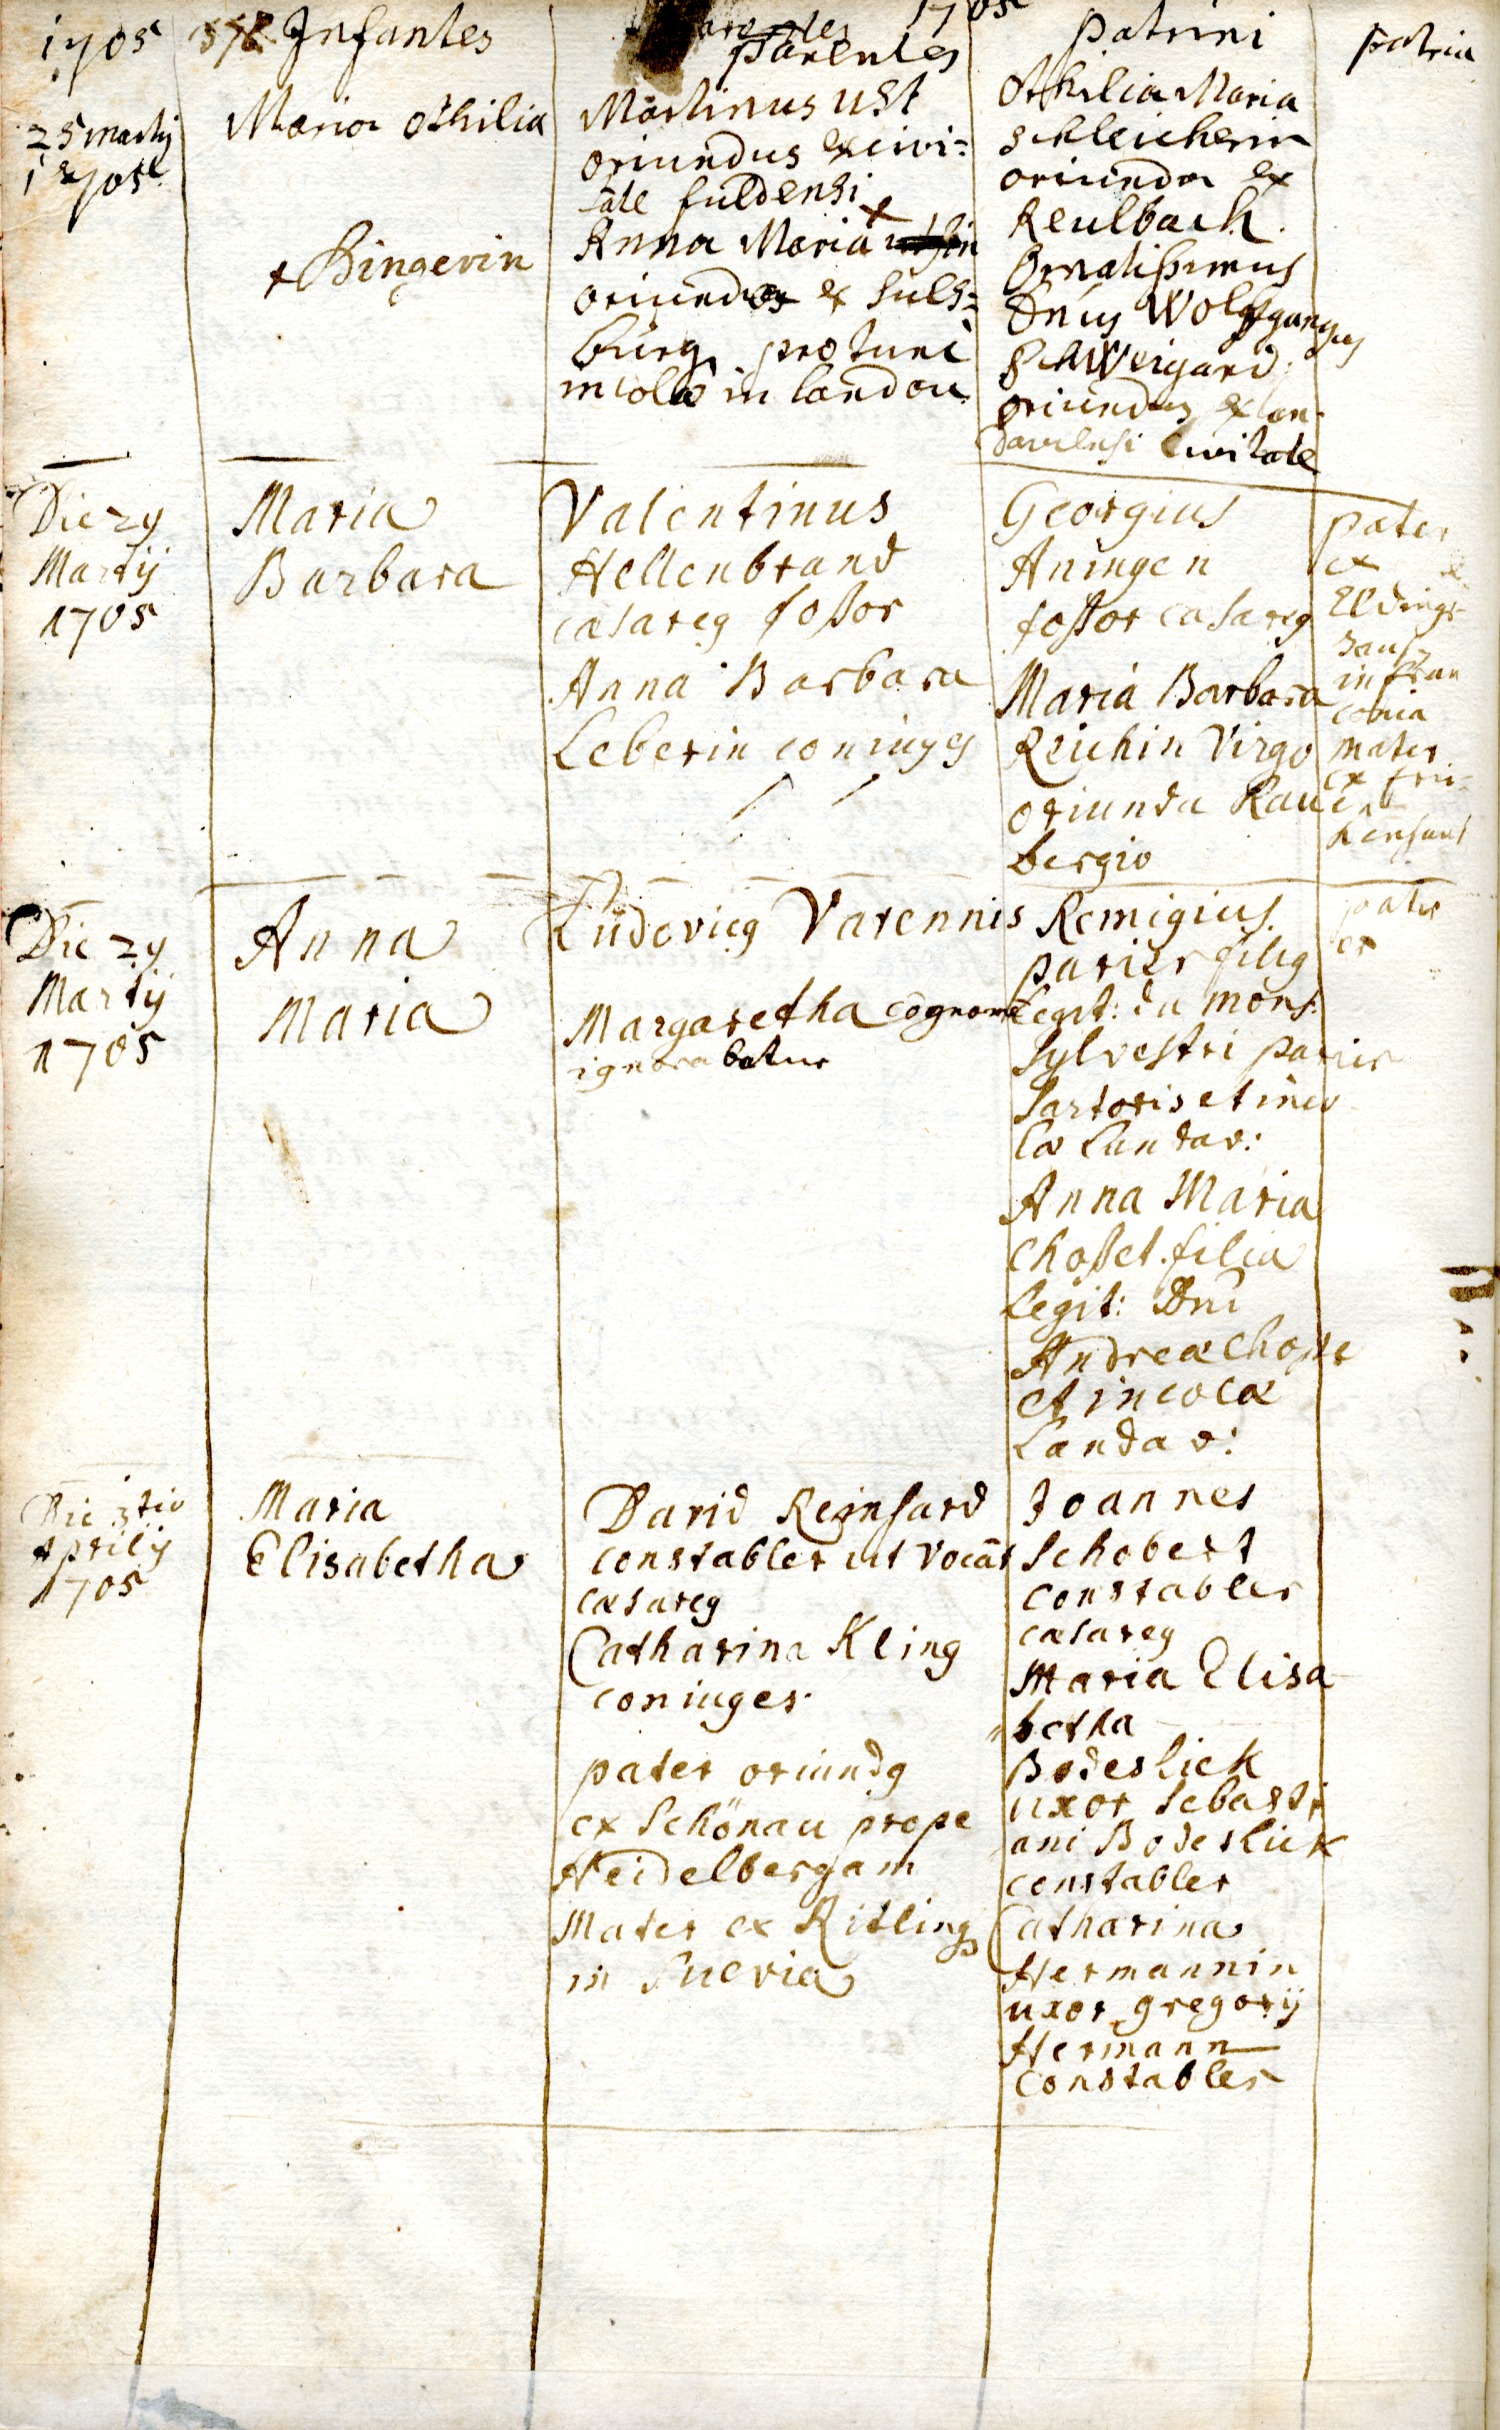 1705
Infantes
1705
parentes
patrini
patria
25 martij
1705
Maria Othilia
+ Bingerin
Martinus Ust
oriundus ex civi=
tate fuldensi
Anna Maria +
oriunda ex Suls=
burg pro tunc
incolæ in landau
Othilia Maria
Schleicherin
oriunda ex
Reulbach.
Ornatissimus
Dnus Wolfgangus
Schweigard
oriundus ex lan-
davensi Civitate
Die 29
Martij
1705
Maria
Barbara
Valentinus
Hellenbrand
cæsareq fossor
Anna Barbara
Leberin coniuges
Georgius
Aningen
fossor cæsareq
Maria Barbara
Reichin Virgo
oriunda Rauen
bergio
pater
ex
Eldings-
haus
in fran
conia
mater
ex
Die 29
Martij
1705
Anna
Maria
Ludovicq Varennis
Margaretha cognomē
ignorabatur
Remigius
parier filiq
Legit: du mons:
Sylvestri parier
Sartoris et inco
læ Landav:
Anna Maria
Chosset. filia
legit: Dni
Andreæ Chosse
et incolæ
Landav:
pater
ex
Die 3tio
Aprilij
1705
Maria
Elisabetha
David Reinhard
constabler ut vocāt
cæsareq
Catharina Kling
coniuges.
pater oriundq
ex Schönau prope
Heidelbergam
Mater ex Ritling
in Suevia
Joannes
Schobert
constabler
cæsareq
Maria Elisa
betha
Bodeslick
uxor Sebasti
ani Bodeslick
constabler
Catharina
Hermannin
uxor gregorij
Hermann
Constabler